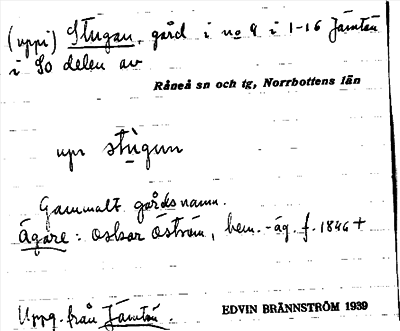 (uppi) Stugan, gård i no 8 i 1-16 Jämtön
i So delen av
Råneå sn och tg, Norrbottens län
upi stugun
Gammalt gårdsnamn.
Ägare: Oskar Öström, hem.-äg. f. 1846 +
Uppg. från Jämtön.
EDVIN BRÄNNSTRÖM 1939